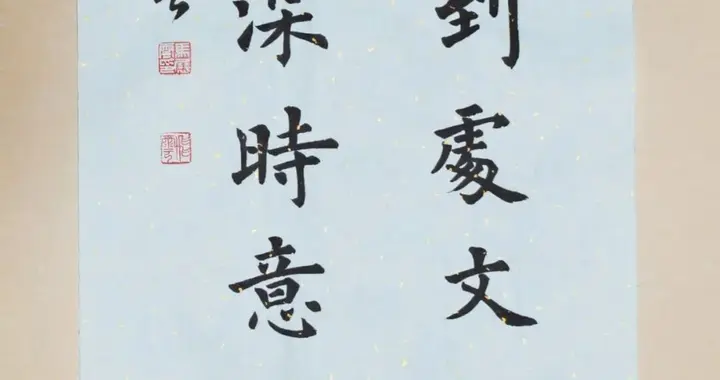 到處文
深時意